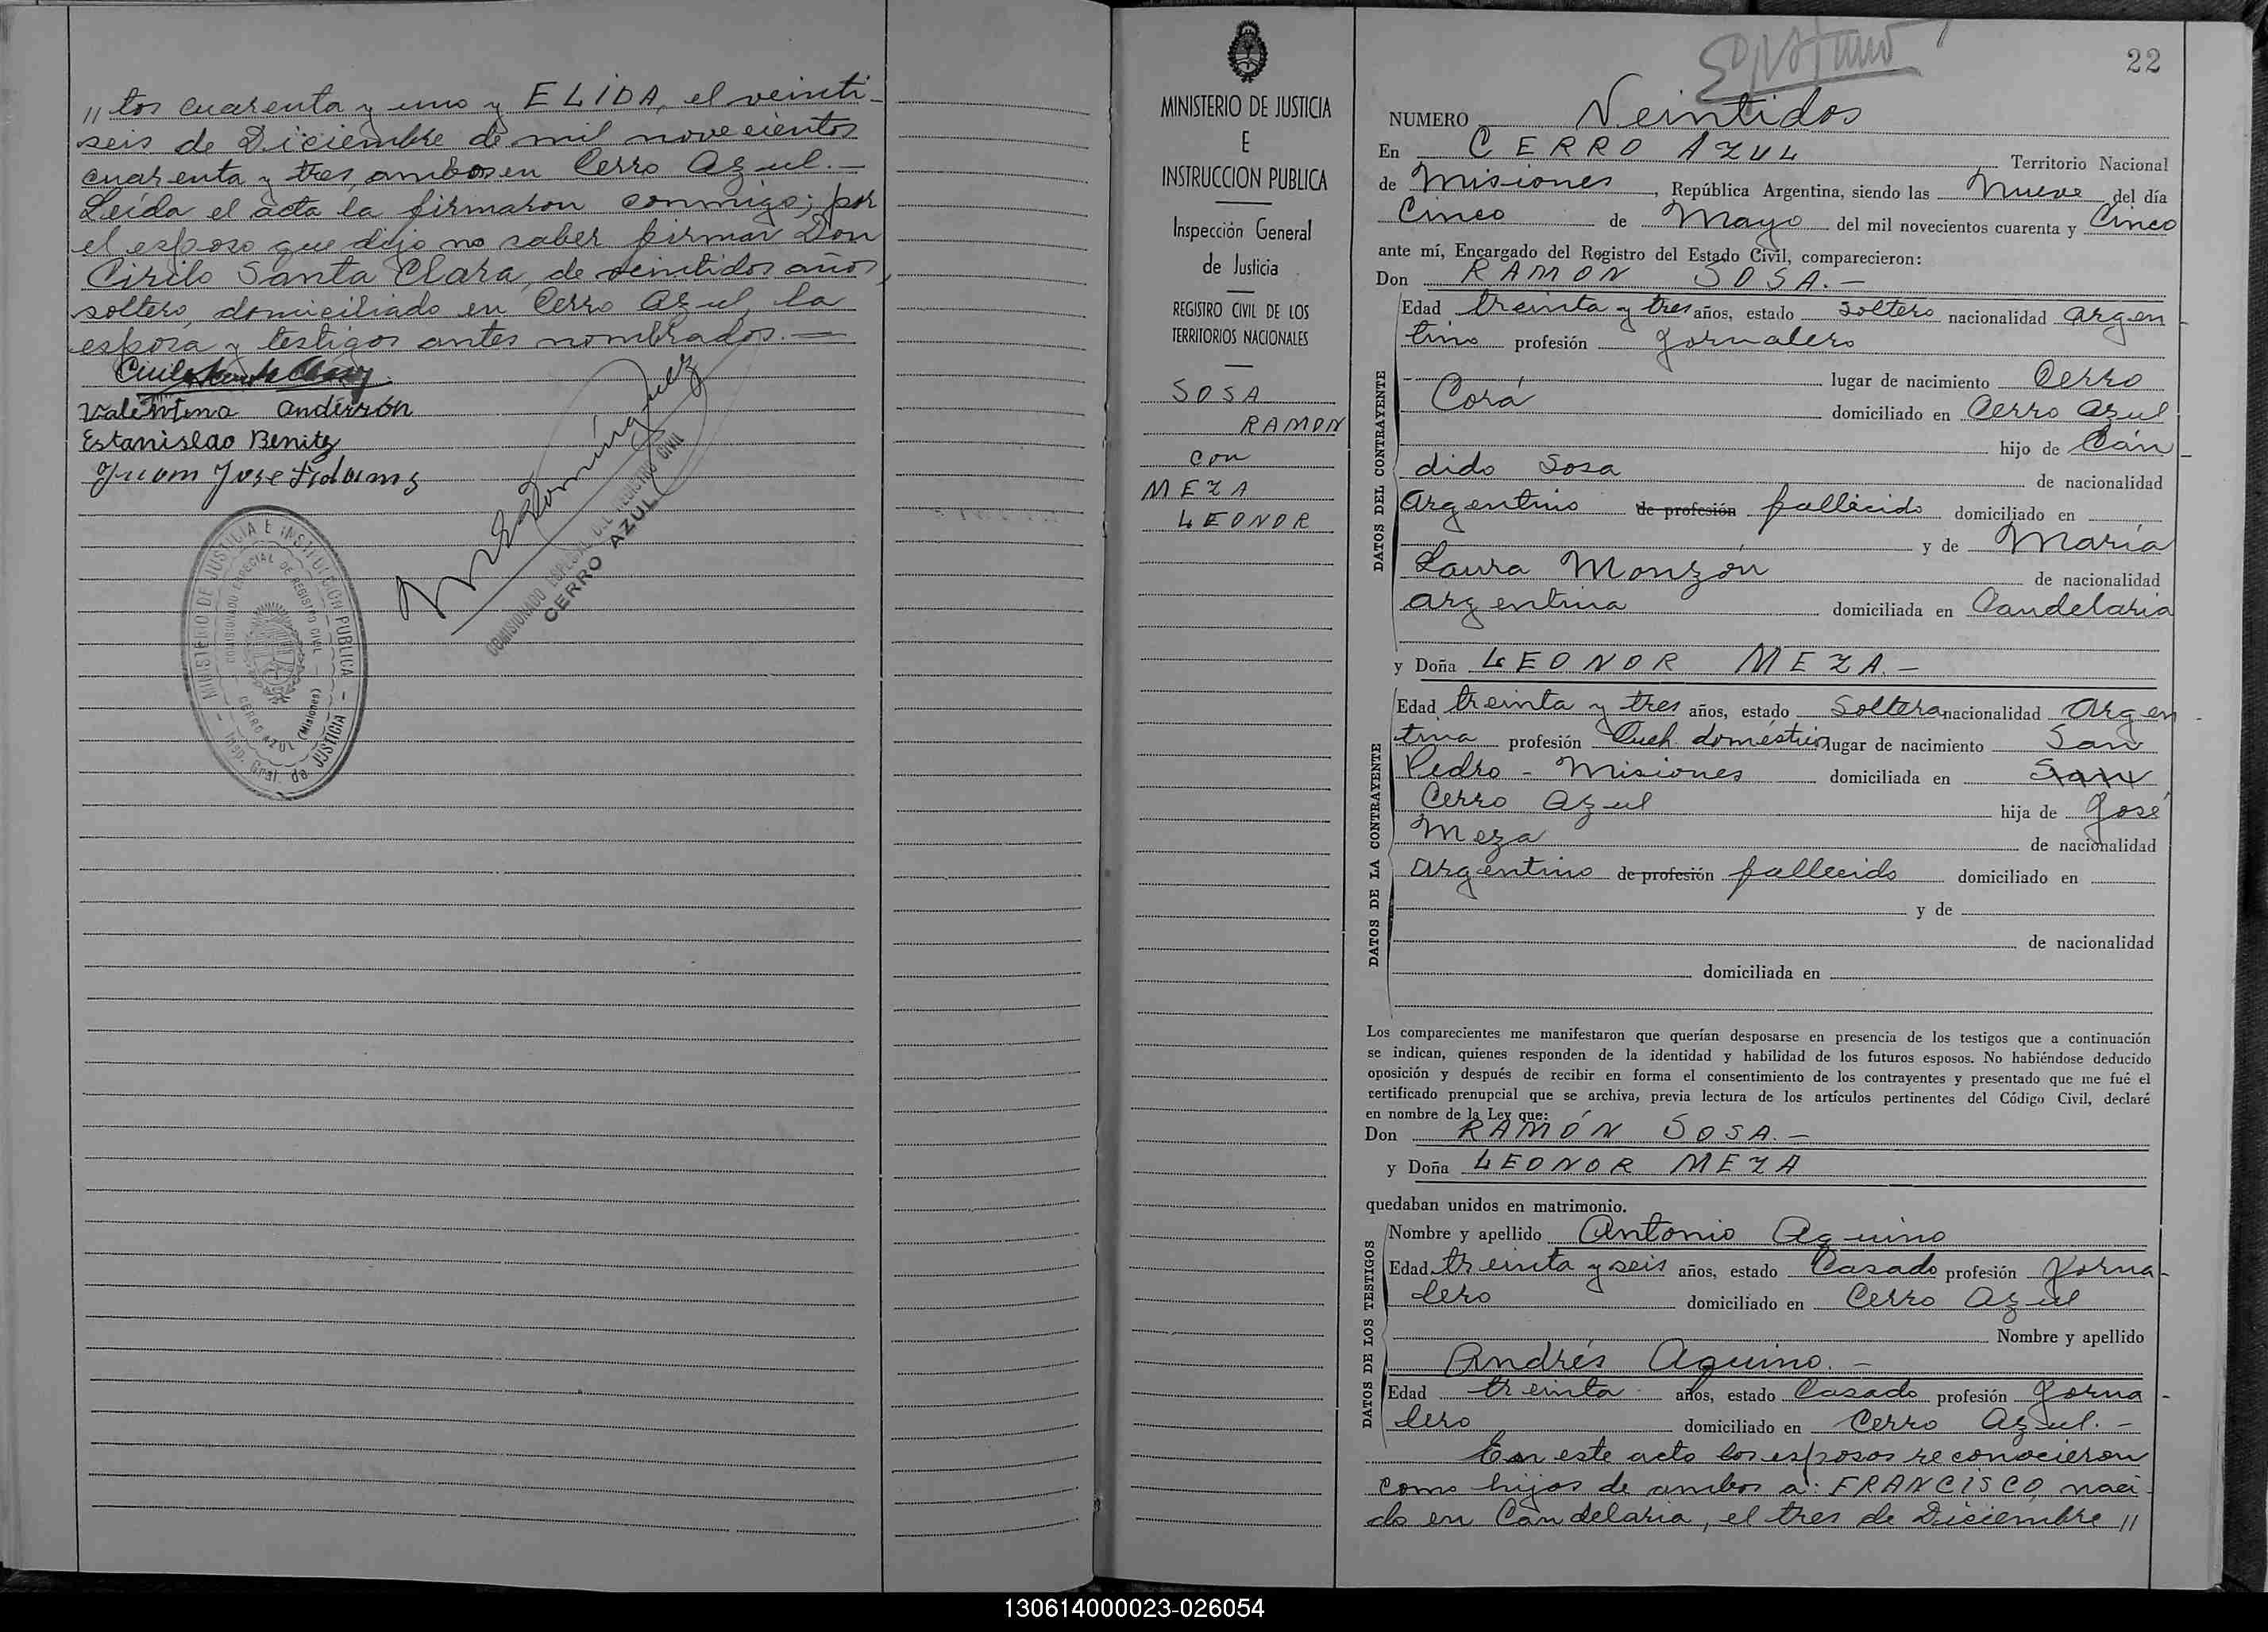 〃tos cuarenta y uno y ELIDA, el veinti-
seis de Diciembre de mil novecientos
cuarenta y tres, ambos en Cerro Azul.—
Leída el acta la firmaron conmigo; por
el esposo que dijo no saber firmar Don
Cirilo Santa Clara, de veintidos años,
soltero, domiciliado en Cerro Azul, la
esposa y testigos antes nombrados.—
Valentina Anderrón
Estanislao Benitez
Juan Jose
COMISIONADO ESPECIAL DEL REGISTRO CIVIL
CERRO AZUL
MINISTERIO DE JUSTICIA E INSTRUCCION PUBLICA
COMISIONADO ESPECIAL DE REGISTRO CIVIL
CERRO AZUL (Misiones)
Insp. Gral. de JUSTICIA
MINISTERIO DE JUSTICIA
E
INSTRUCCION PUBLICA
Inspección General
de Justicia
REGISTRO CIVIL DE LOS
TERRITORIOS NACIONALES
SOSA
RAMON
con
MEZA
LEONOR
22
NUMERO Veintidos
En CERRO AZUL Territorio Nacional
de Misiones, República Argentina, siendo las Nueve del día
Cinco de Mayo del mil novecientos cuarenta y Cinco
ante mí, Encargado del Registro del Estado Civil, comparecieron:
Don RAMON SOSA.—
DATOS DEL CONTRAYENTE
Edad treinta y tres años, estado soltero nacionalidad Argen-
tino profesión Jornalero
lugar de nacimiento Cerro
Corá domiciliado en Cerro Azul
hijo de Cán-
dido Sosa de nacionalidad
Argentino de profesión fallecido domiciliado en
y de María
Laura Monzón de nacionalidad
argentina domiciliada en Candelaria
y Doña LEONOR MEZA.—
DATOS DE LA CONTRAYENTE
Edad treinta y tres años, estado Soltera nacionalidad Argen-
tina profesión Queh. domésticos lugar de nacimiento San
Pedro - Misiones domiciliada en San
Cerro Azul hija de José
Meza de nacionalidad
Argentino de profesión fallecido domiciliado en
y de
de nacionalidad
domiciliada en
Los comparecientes me manifestaron que querían desposarse en presencia de los testigos que a continuación
se indican, quienes responden de la identidad y habilidad de los futuros esposos. No habiéndose deducido
oposición y después de recibir en forma el consentimiento de los contrayentes y presentado que me fué el
certificado prenupcial que se archiva, previa lectura de los artículos pertinentes del Código Civil, declaré
en nombre de la Ley que:
Don RAMÓN SOSA.—
y Doña LEONOR MEZA
quedaban unidos en matrimonio.
DATOS DE LOS TESTIGOS
Nombre y apellido Antonio Aquino
Edad treinta y seis años, estado Casado profesión Jorna-
lero domiciliado en Cerro Azul
Nombre y apellido
Andrés Aquino.—
Edad treinta años, estado Casado profesión Jorna-
lero domiciliado en Cerro Azul.—
En este acto los esposos reconocieron
como hijos de ambos a: FRANCISCO, naci-
do en Candelaria, el tres de Diciembre〃
130614000023-026054